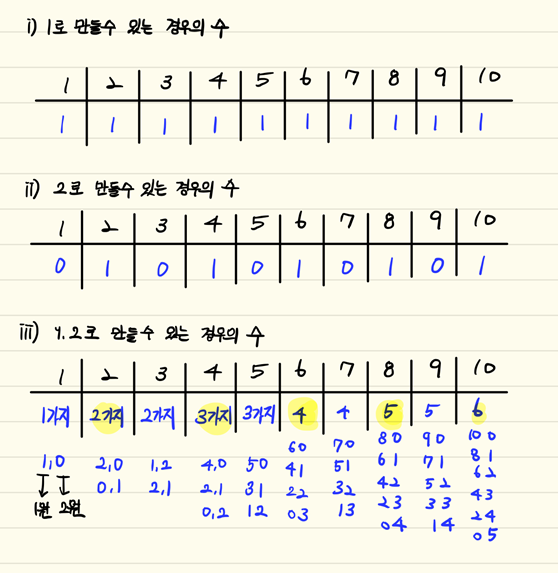 i) 1로 만들수 있는 경우의 수
1 2 3 4 5 6 7 8 9 10
1 1 1 1 1 1 1 1 1 1
ii) 2로 만들수 있는 경우의 수
1 2 3 4 5 6 7 8 9 10
0 1 0 1 0 1 0 1 0 1
iii) 1,2로 만들수 있는 경우의 수
1 2 3 4 5 6 7 8 9 10
1가지 2가지 2가지 3가지 3가지 4 4 5 5 6
60 70 80 90 10 0
1,0 2,0 1,2 4,0 50 41 51 61 71 81
0,1 2,1 2,1 31 22 32 42 52 62
1원 2원 0,2 12 03 13 23 33 43
04 14 24
05